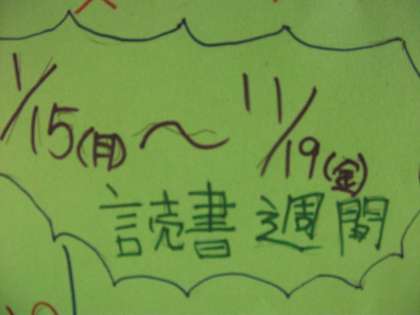 1/15(月)〜11/19(金)
読書週間